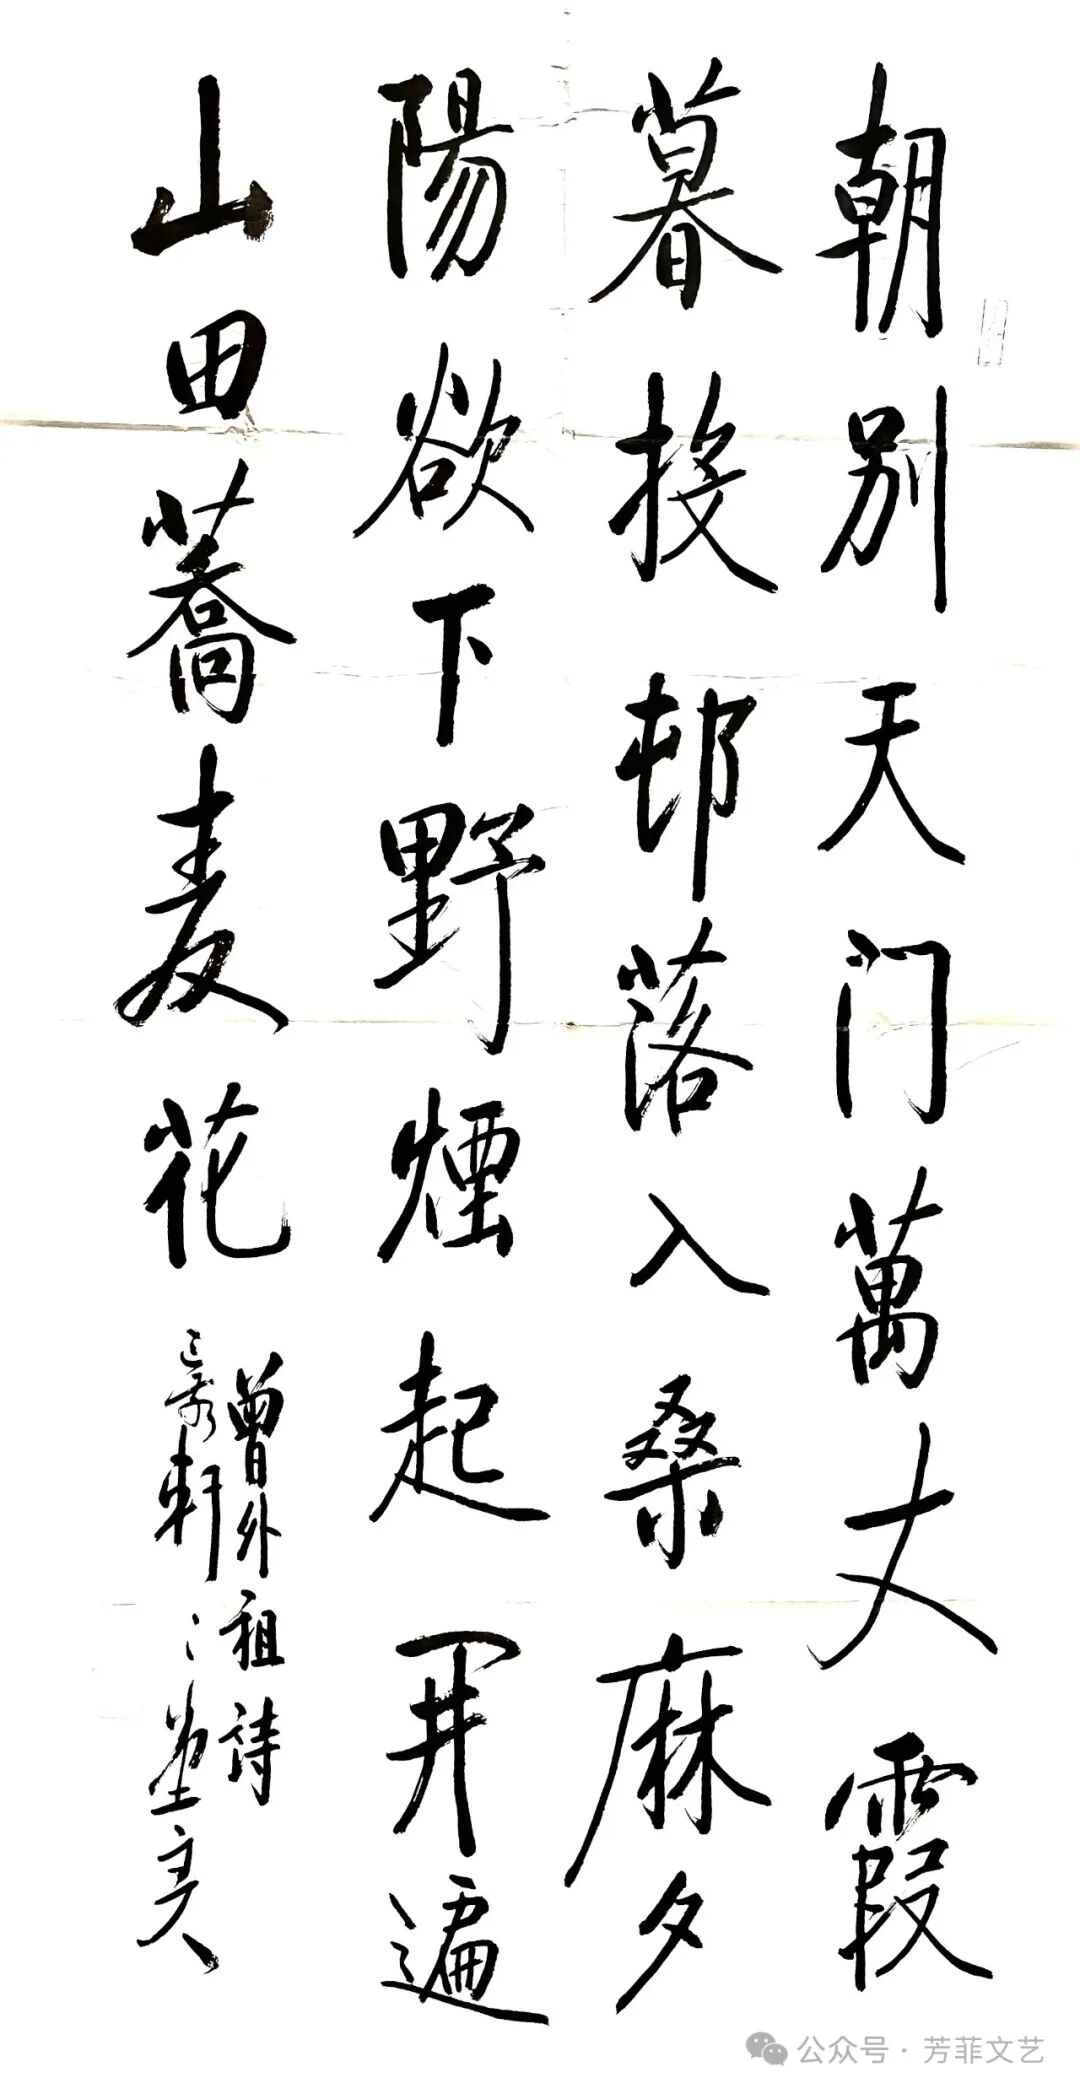 朝别天门萬丈霞
暮投邨落入桑麻夕
陽欲下野煙起開遍
山田蕎麦花
曾外祖詩
軒
公众号·芳菲文艺